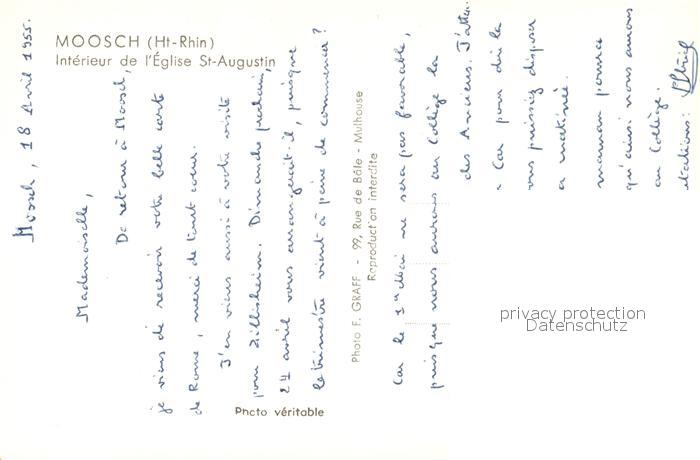 MOOSCH (Ht-Rhin)
Intérieur de l'Église St-Augustin
Moosch, 18 Avril 1955.
Mademoiselle,
De retour à Moosch,
je viens de recevoir votre belle carte
de Rome, merci de tout cœur.
J'en viens aussi à votre visite
pour Zillisheim. Dimanche prochain,
24 avril vous arrangerait-il, puisque
le trimestre vient à peine de commencer?
Photo véritable
Photo F. GRAFF - 99, Rue de Bâle - Mulhouse
Reproduction interdite
Car le 1er Mai ne sera pas favorable,
puisque nous aurons au Collège la
des Anciens. J'atten
Car pour dire la
vous puissiez disposer
a matinée.
maman pourra
qu'ainsi nous aurons
au Collège.
privacy protection
Datenschutz